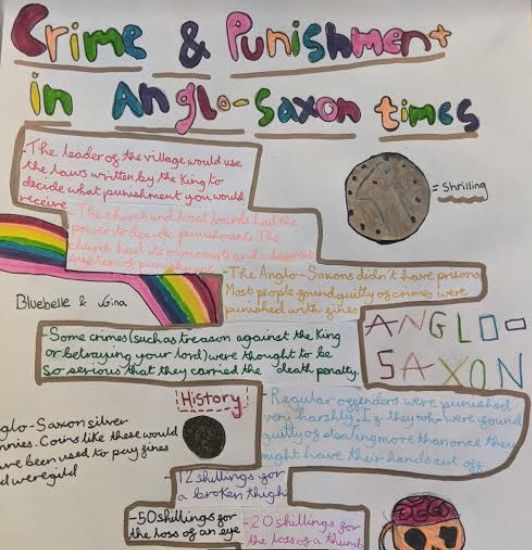 Crime & Punishment
in Anglo-Saxon times
-The leader of the village would use
the laws written by the King to
decide what punishment you would
receive
= Shrilling
-The church and local lords had the
power to decide punishment. The
church had its own courts and different
system of punishment
-The Anglo-Saxons didn't have prisons
Most people found guilty of crimes were
punished with fines
Bluebelle & Gina
ANGLO-
SAXON
-Some crimes (such as treason against the King
or betraying your lord) were thought to be
so serious that they carried the death penalty.
History
-Regular offenders were punished
very harshly. If they were found
guilty of stealing more than once they
might have their hands cut off
glo-Saxon silver
nnies. Coins like these would
ve been used to pay fines
d weregild
-12 shillings for
a broken thigh
-50 shillings for
the loss of an eye
-20 shillings for
the loss of a thumb